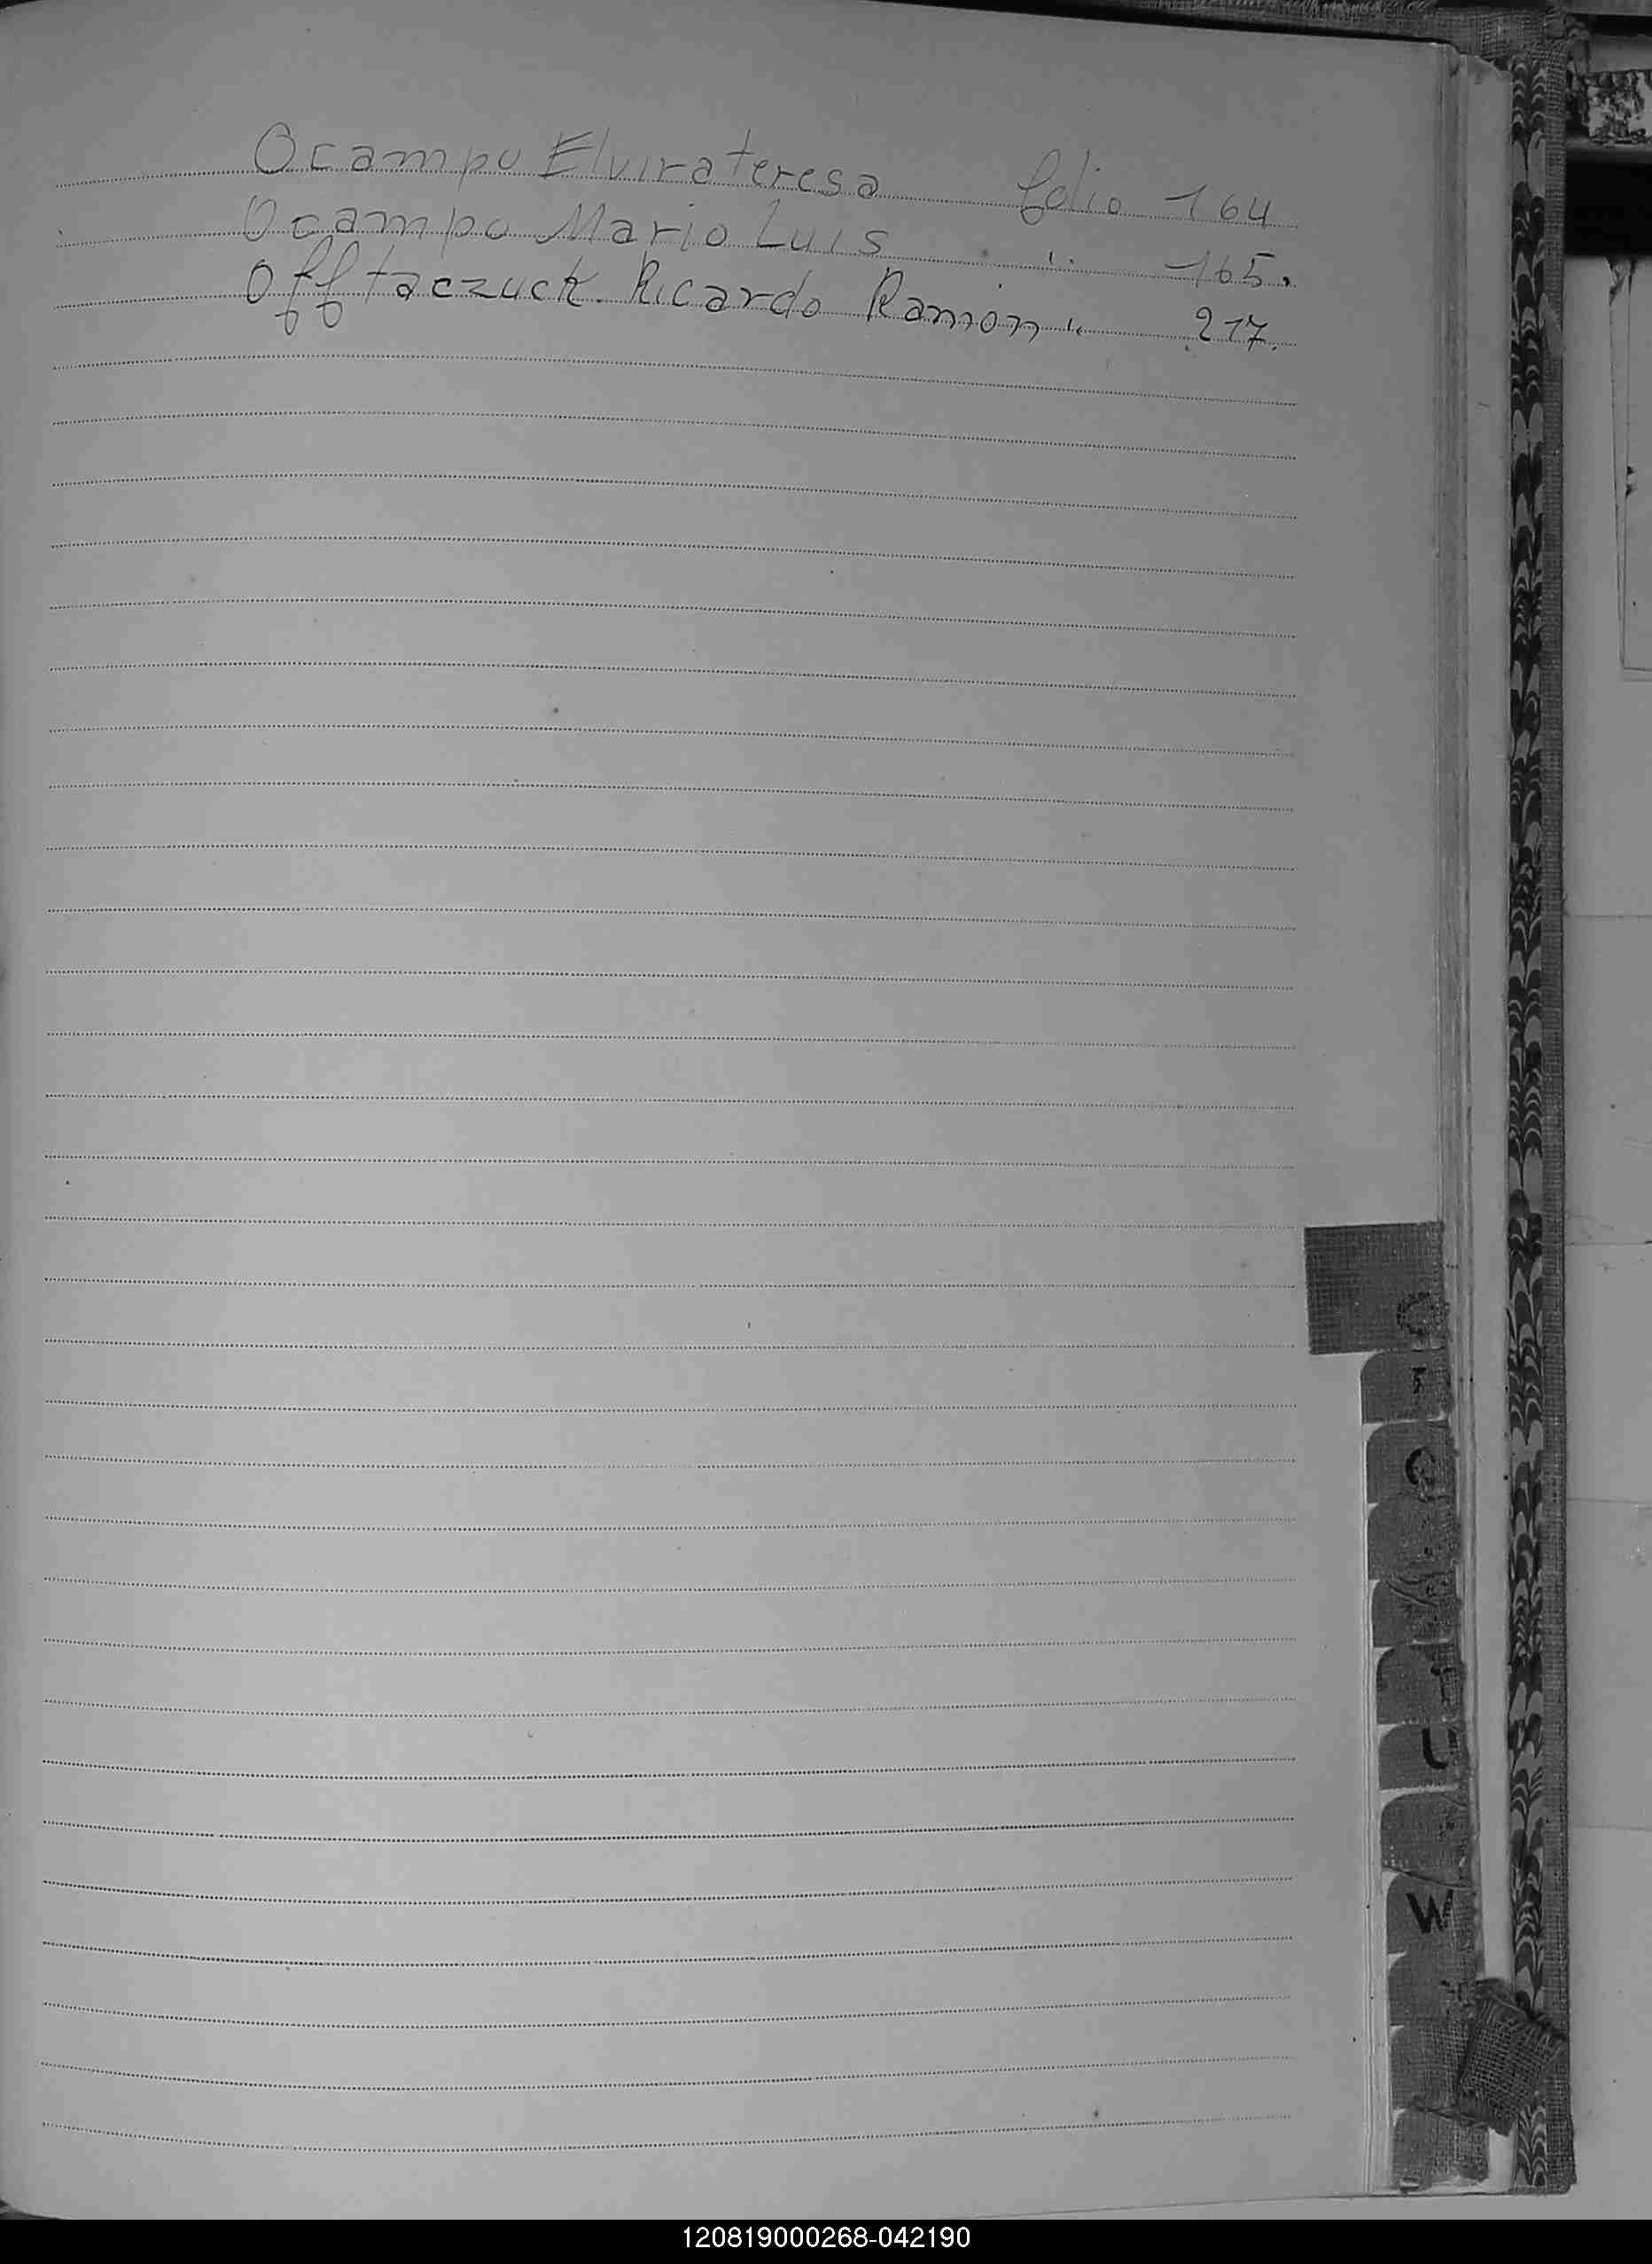 Ocampo Elvira teresa folio 164
Ocampo Mario Luis " 165.
Offtaczuck Ricardo Ramón " 217.
O
Q
T
U
W
120819000268-042190